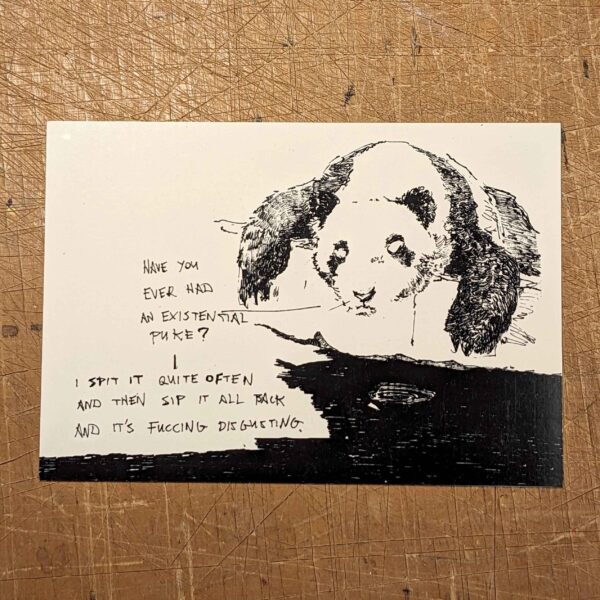 HAVE YOU
EVER HAD
AN EXISTENTIAL
PUKE?
I SPIT IT QUITE OFTEN
AND THEN SIP IT ALL BACK
AND IT'S FUCCING DISGUSTING.